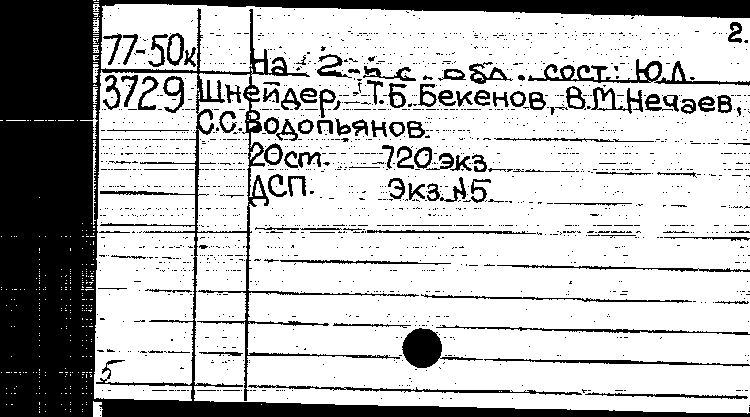 2.
77-50к На 2-й с. обл. сост.: Ю.Л.
3729 Шнейдер, Т.Б. Бекенов, В.М. Нечаев,
С.С. Водопьянов.
20 ст. 720 экз.
ДСП. Экз. №5.
5